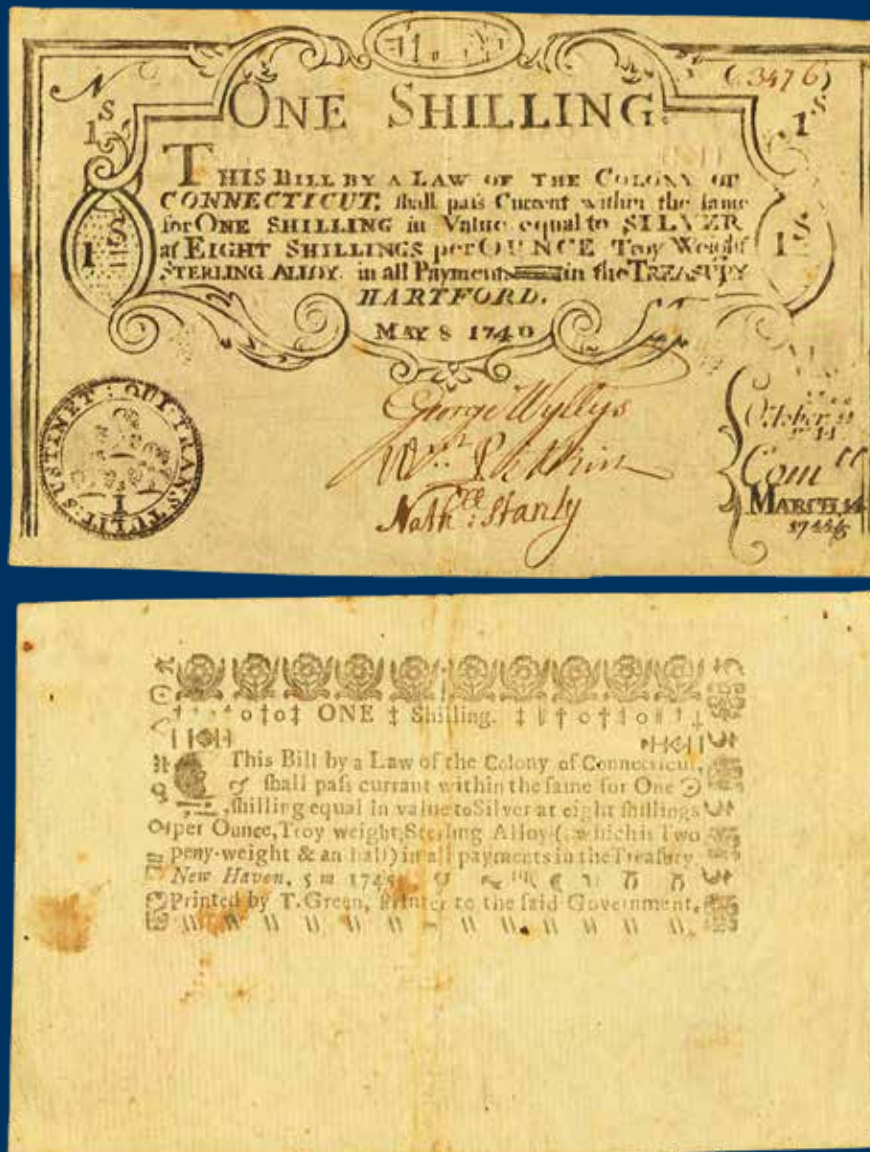 No (3476)
ONE SHILLING.
1S 1S
THIS BILL BY A LAW OF THE COLONY OF
CONNECTICUT, shall paſs Current within the ſame
for ONE SHILLING in Value equal to SILVER
at EIGHT SHILLINGS per OUNCE Troy Weight
STERLING ALLOY. in all Payments in the TREASURY
1S 1S
HARTFORD.
MAY 8 1740
SUSTINET : QUI TRANSTULIT
1
George Wyllys
Wm. Pitkin
Nathll: Stanly
October 11
Comll
MARCH 14
1744/5
‡ o‡o‡ ONE ‡ Shilling. ‡
This Bill by a Law of the Colony of Connecticut,
ſhall paſs currant within the ſame for One
ſhilling equal in value to Silver at eight ſhillings
per Ounce, Troy weight, Sterling Alloy (which is Two
peny-weight & an half) in all payments in the Treaſury
New Haven, 5 m 1745
Printed by T. Green, Printer to the ſaid Government.